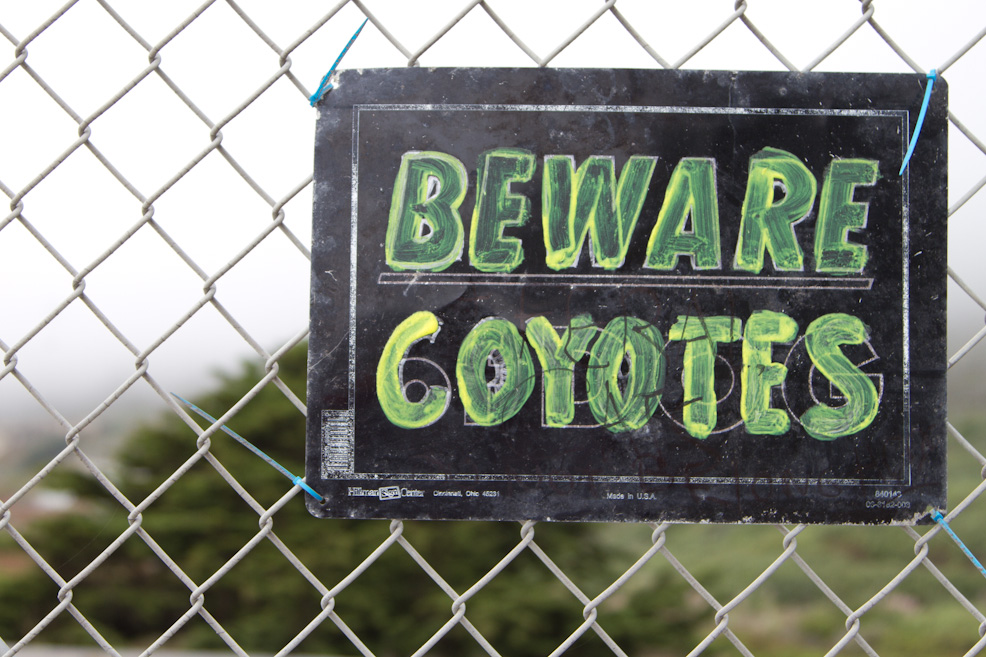 BEWARE
COYOTES
Hillman Sign Center Cincinnati, Ohio 45231 Made in U.S.A. 840143